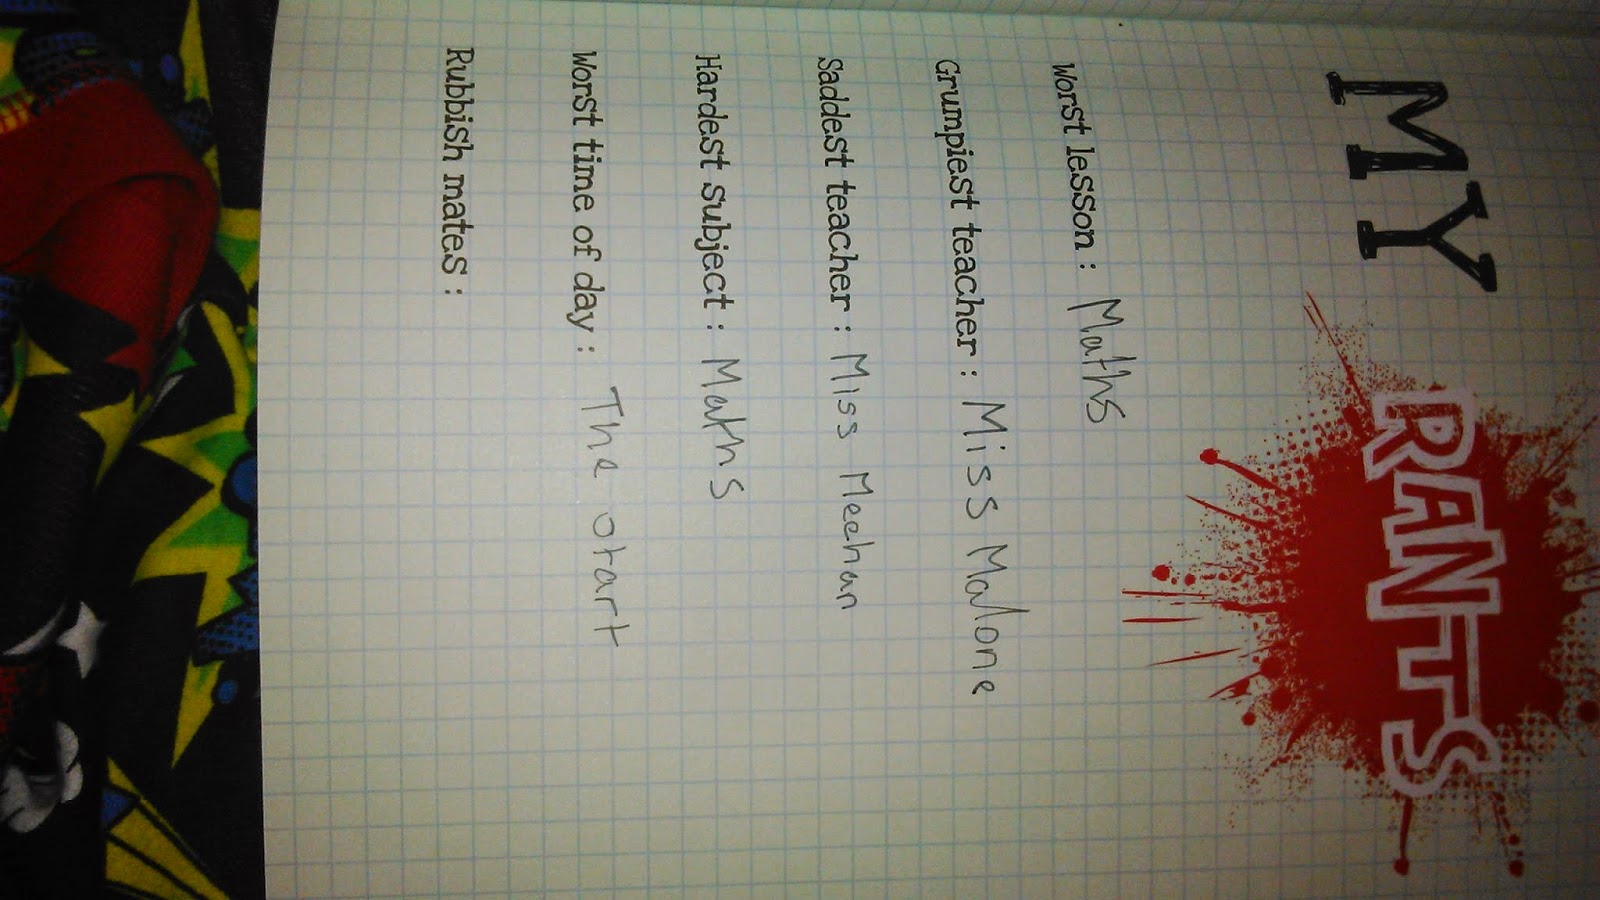 MY RANTS
Worst lesson : Maths
Grumpiest teacher : Miss Malone
Saddest teacher : Miss Meehan
Hardest subject : Maths
Worst time of day : The otart
Rubbish mates :